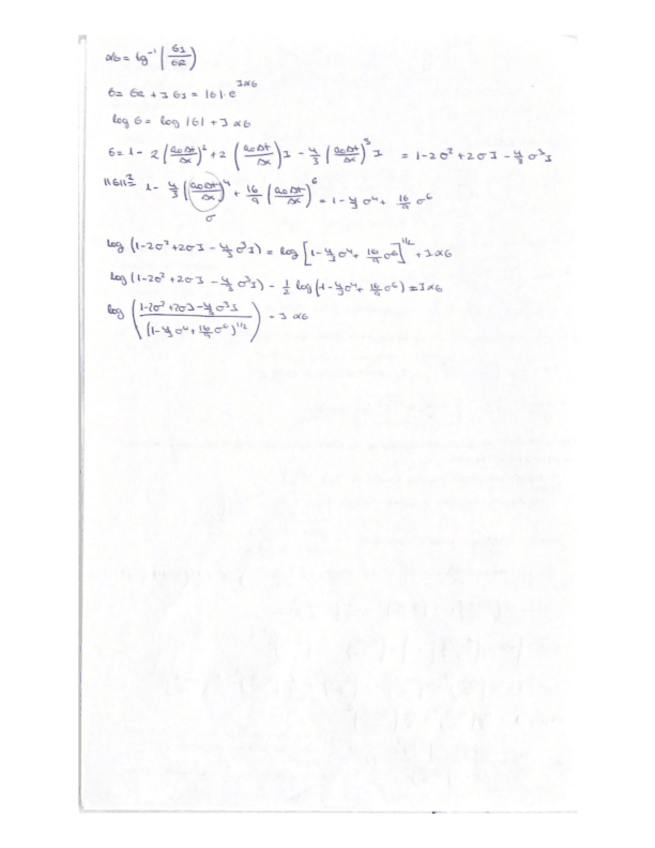 αG = tg⁻¹ (GJ/GR)
G = GR + J GJ = |G|·e^{JαG}
log G = log |G| + J αG
G = 1 - 2 (a₀Δt/Δx)² + 2 (a₀Δt/Δx) J - 4/3 (a₀Δt/Δx)³ J = 1 - 2σ² + 2σJ - 4/3 σ³J
||G||² = 1 - 4/3 (a₀Δt/Δx)⁴ + 16/9 (a₀Δt/Δx)⁶ = 1 - 4/3 σ⁴ + 16/9 σ⁶
σ
log (1 - 2σ² + 2σJ - 4/3 σ³J) = log [1 - 4/3 σ⁴ + 16/9 σ⁶]^{1/2} + JαG
log (1 - 2σ² + 2σJ - 4/3 σ³J) - 1/2 log (1 - 4/3 σ⁴ + 16/9 σ⁶) = JαG
log ((1 - 2σ² + 2σJ - 4/3 σ³J)/(1 - 4/3 σ⁴ + 16/9 σ⁶)^{1/2}) = J αG